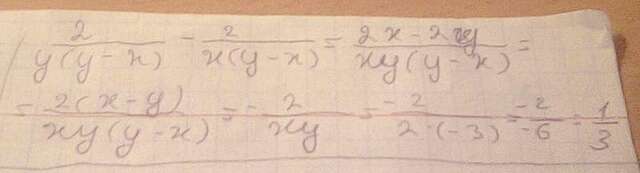 2/(y(y-x)) - 2/(x(y-x)) = (2x-2y)/(xy(y-x)) =
= 2(x-y)/(xy(y-x)) = -2/(xy) = -2/(2·(-3)) = -2/-6 = 1/3